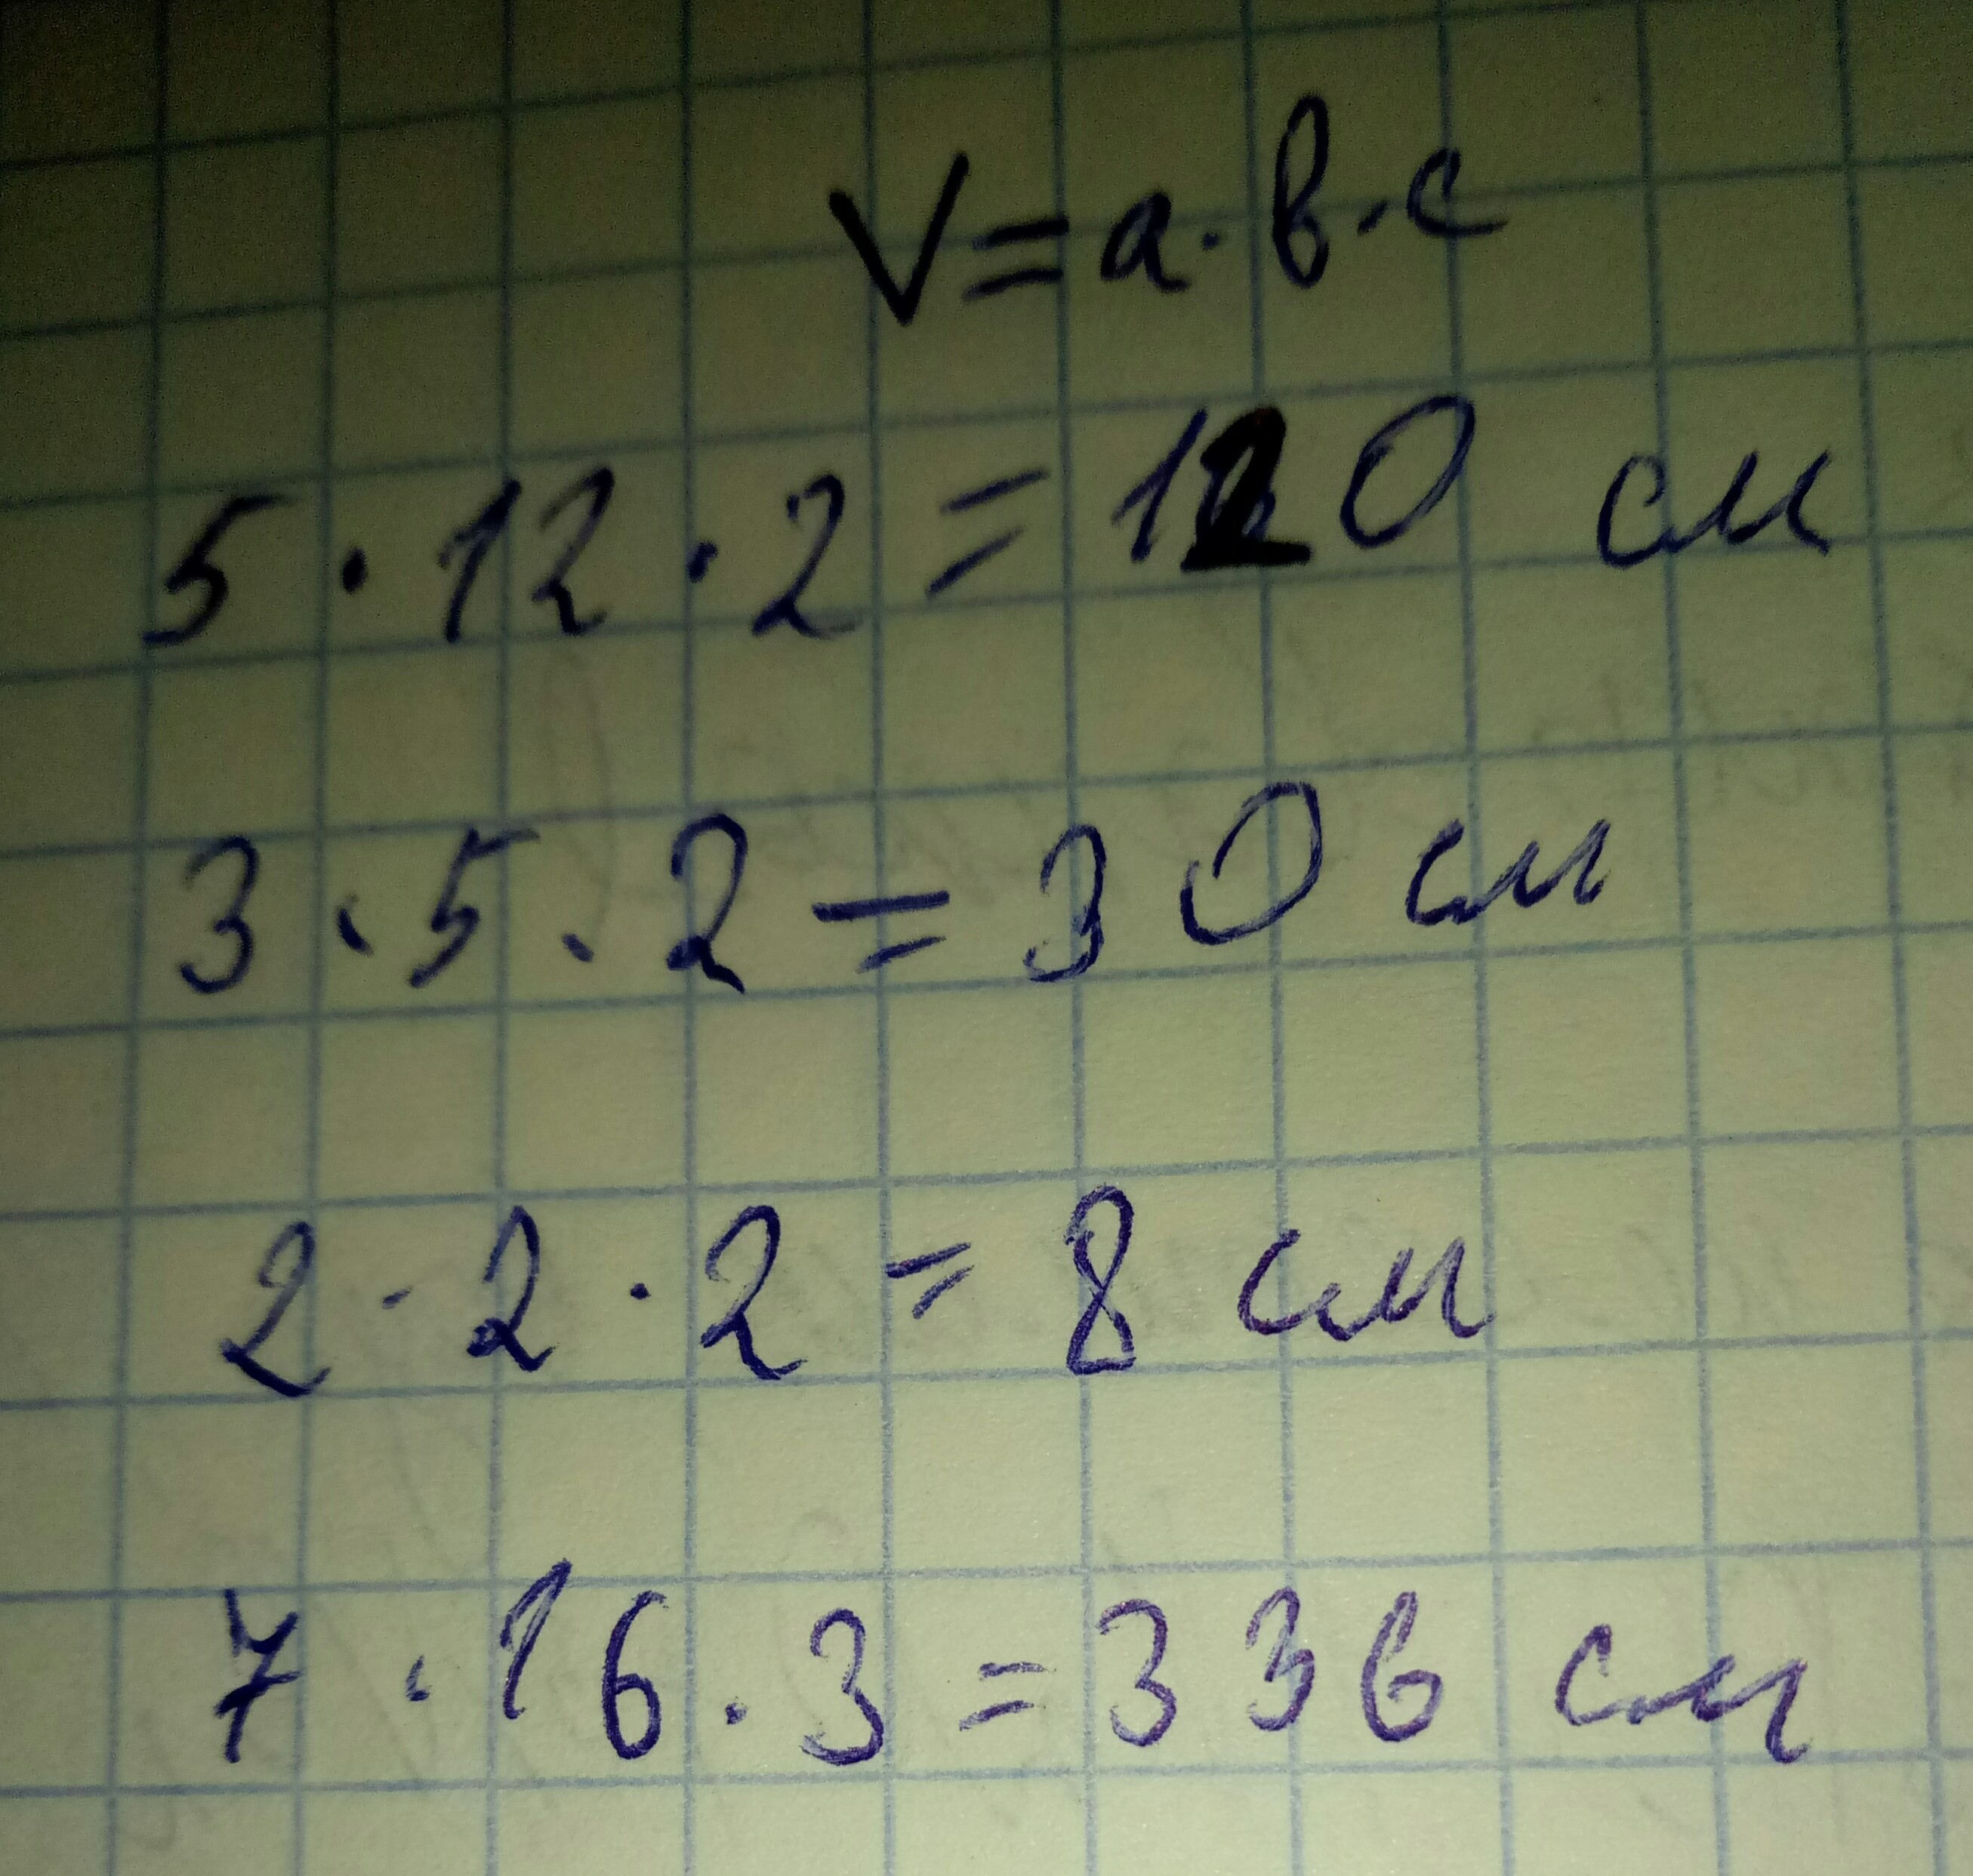 V=a·b·c
5·12·2=120 см
3·5·2=30 см
2·2·2=8 см
7·16·3=336 см